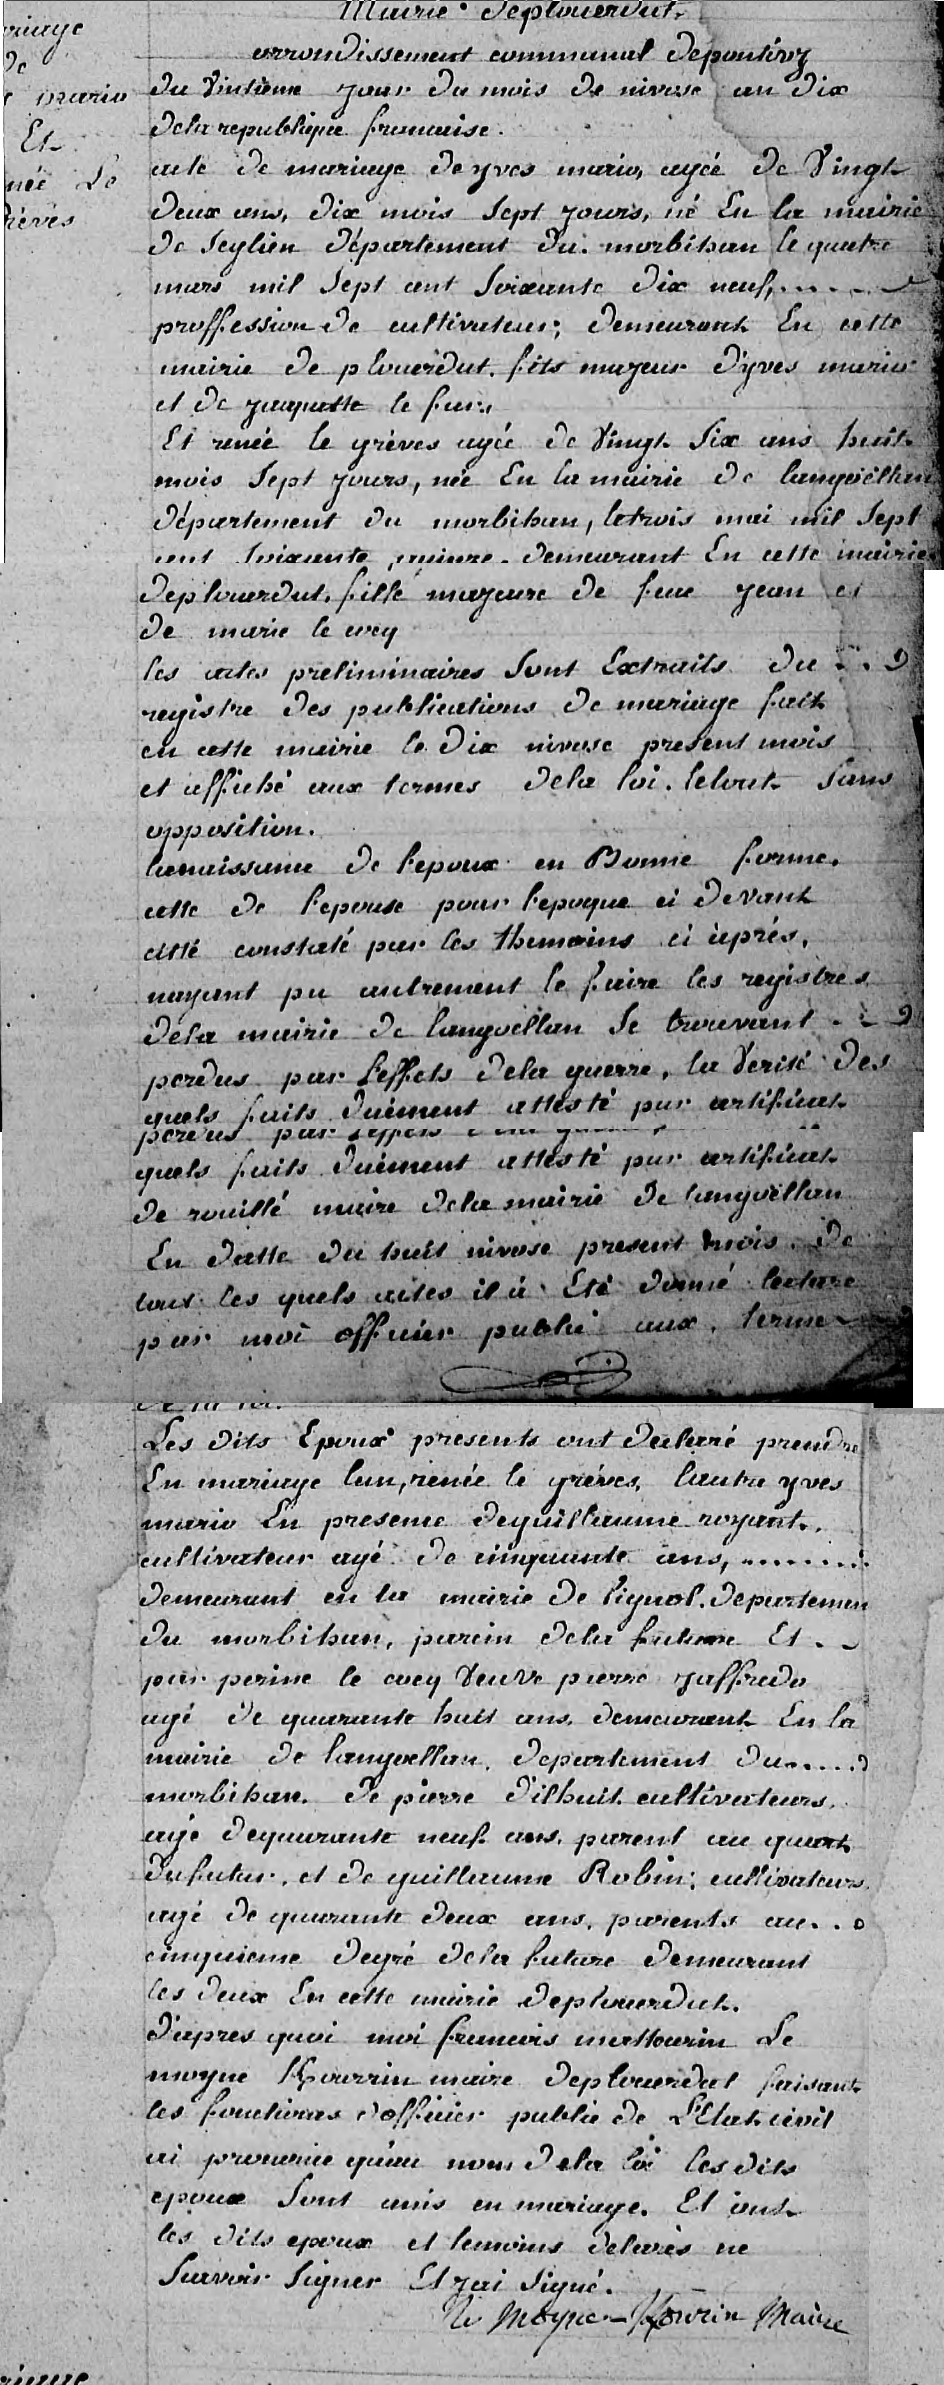 Mairie deplouerdut
arrondissement communal depontivy
riage
de
mario
Et
née Le
rèves
du vintieme jour du mois de nivose an dix
dela republique francaise.
acte de mariage de yves mario, agée de vingt
deux ans, dix mois sept jours, né En la mairie
de seglien département du morbihan le quatre
mars mil sept cent soixante dix neuf,
proffession de cultivateur; demeurant En cette
mairie de plouerdut. fils majeur d'yves mario
et de jaquette le fur,
Et renée le grèves agée de vingt six ans huit
mois sept jours, née En la mairie de langoëllan
département du morbihan, letrois mai mil sept
cent soixante quinze. demeurant En cette mairie
deplouerdut. fille majeure de feue jean et
de marie le coeq
les actes preliminaires sont Extraits du
registre des publications de mariage fait
en cette mairie le dix nivose present mois
et affiché aux termes dela loi. letout sans
opposition.
lanaissance de l'epoux en Bonne forme.
cette de l'epouse pour l'epoque ci devant
citté constaté par les themoins ci après,
nayant pu autrement le faire les registres
dela mairie de langoëllan se trouvant
perdus par l'effets dela guerre, la verité des
quels faits duément attesté par certificat
quels faits duément attesté par certificat
de rouillé maire dela mairie de langoëllan
En datte du huit nivose present mois. de
tous les quels actes il à Eté donné lecture
par moi officier public aux termes
de la loi.
Les dits Epoux presents ont declaré prendre
En mariage lun, renée le grèves, lautre yves
mario En presence deguillaume royant,
cultivateur agé de cinquante ans,
demeurant en la mairie de lignol. departemen
du morbihan, parein dela future Et
par perine le coeq veuve pierre jaffredo
agé de quarante huit ans. demeurant En la
mairie de langoellan. departement du
morbihan. de pierre d'ilhuit cultivateurs.
agé dequarante neuf ans. parent au quart
du futur, et de guillaume Robin; cultivateurs
agé de quarante deux ans, parents au
cinquieme degré dela future demeurant
les deux En cette mairie deplouerdut.
d'apres quoi moi francois mattourin Le
moyne Kourrin maire deplouerdut faisant
les fonctions d'officier public de L'Etat civil
ai prononcé qu'au nom dela loi les dits
epoux sont unis en mariage. Et ont
les dits epoux et temoins delarés ne
savoir signer Et jai signé.
Le Moyne Kourrin Maire